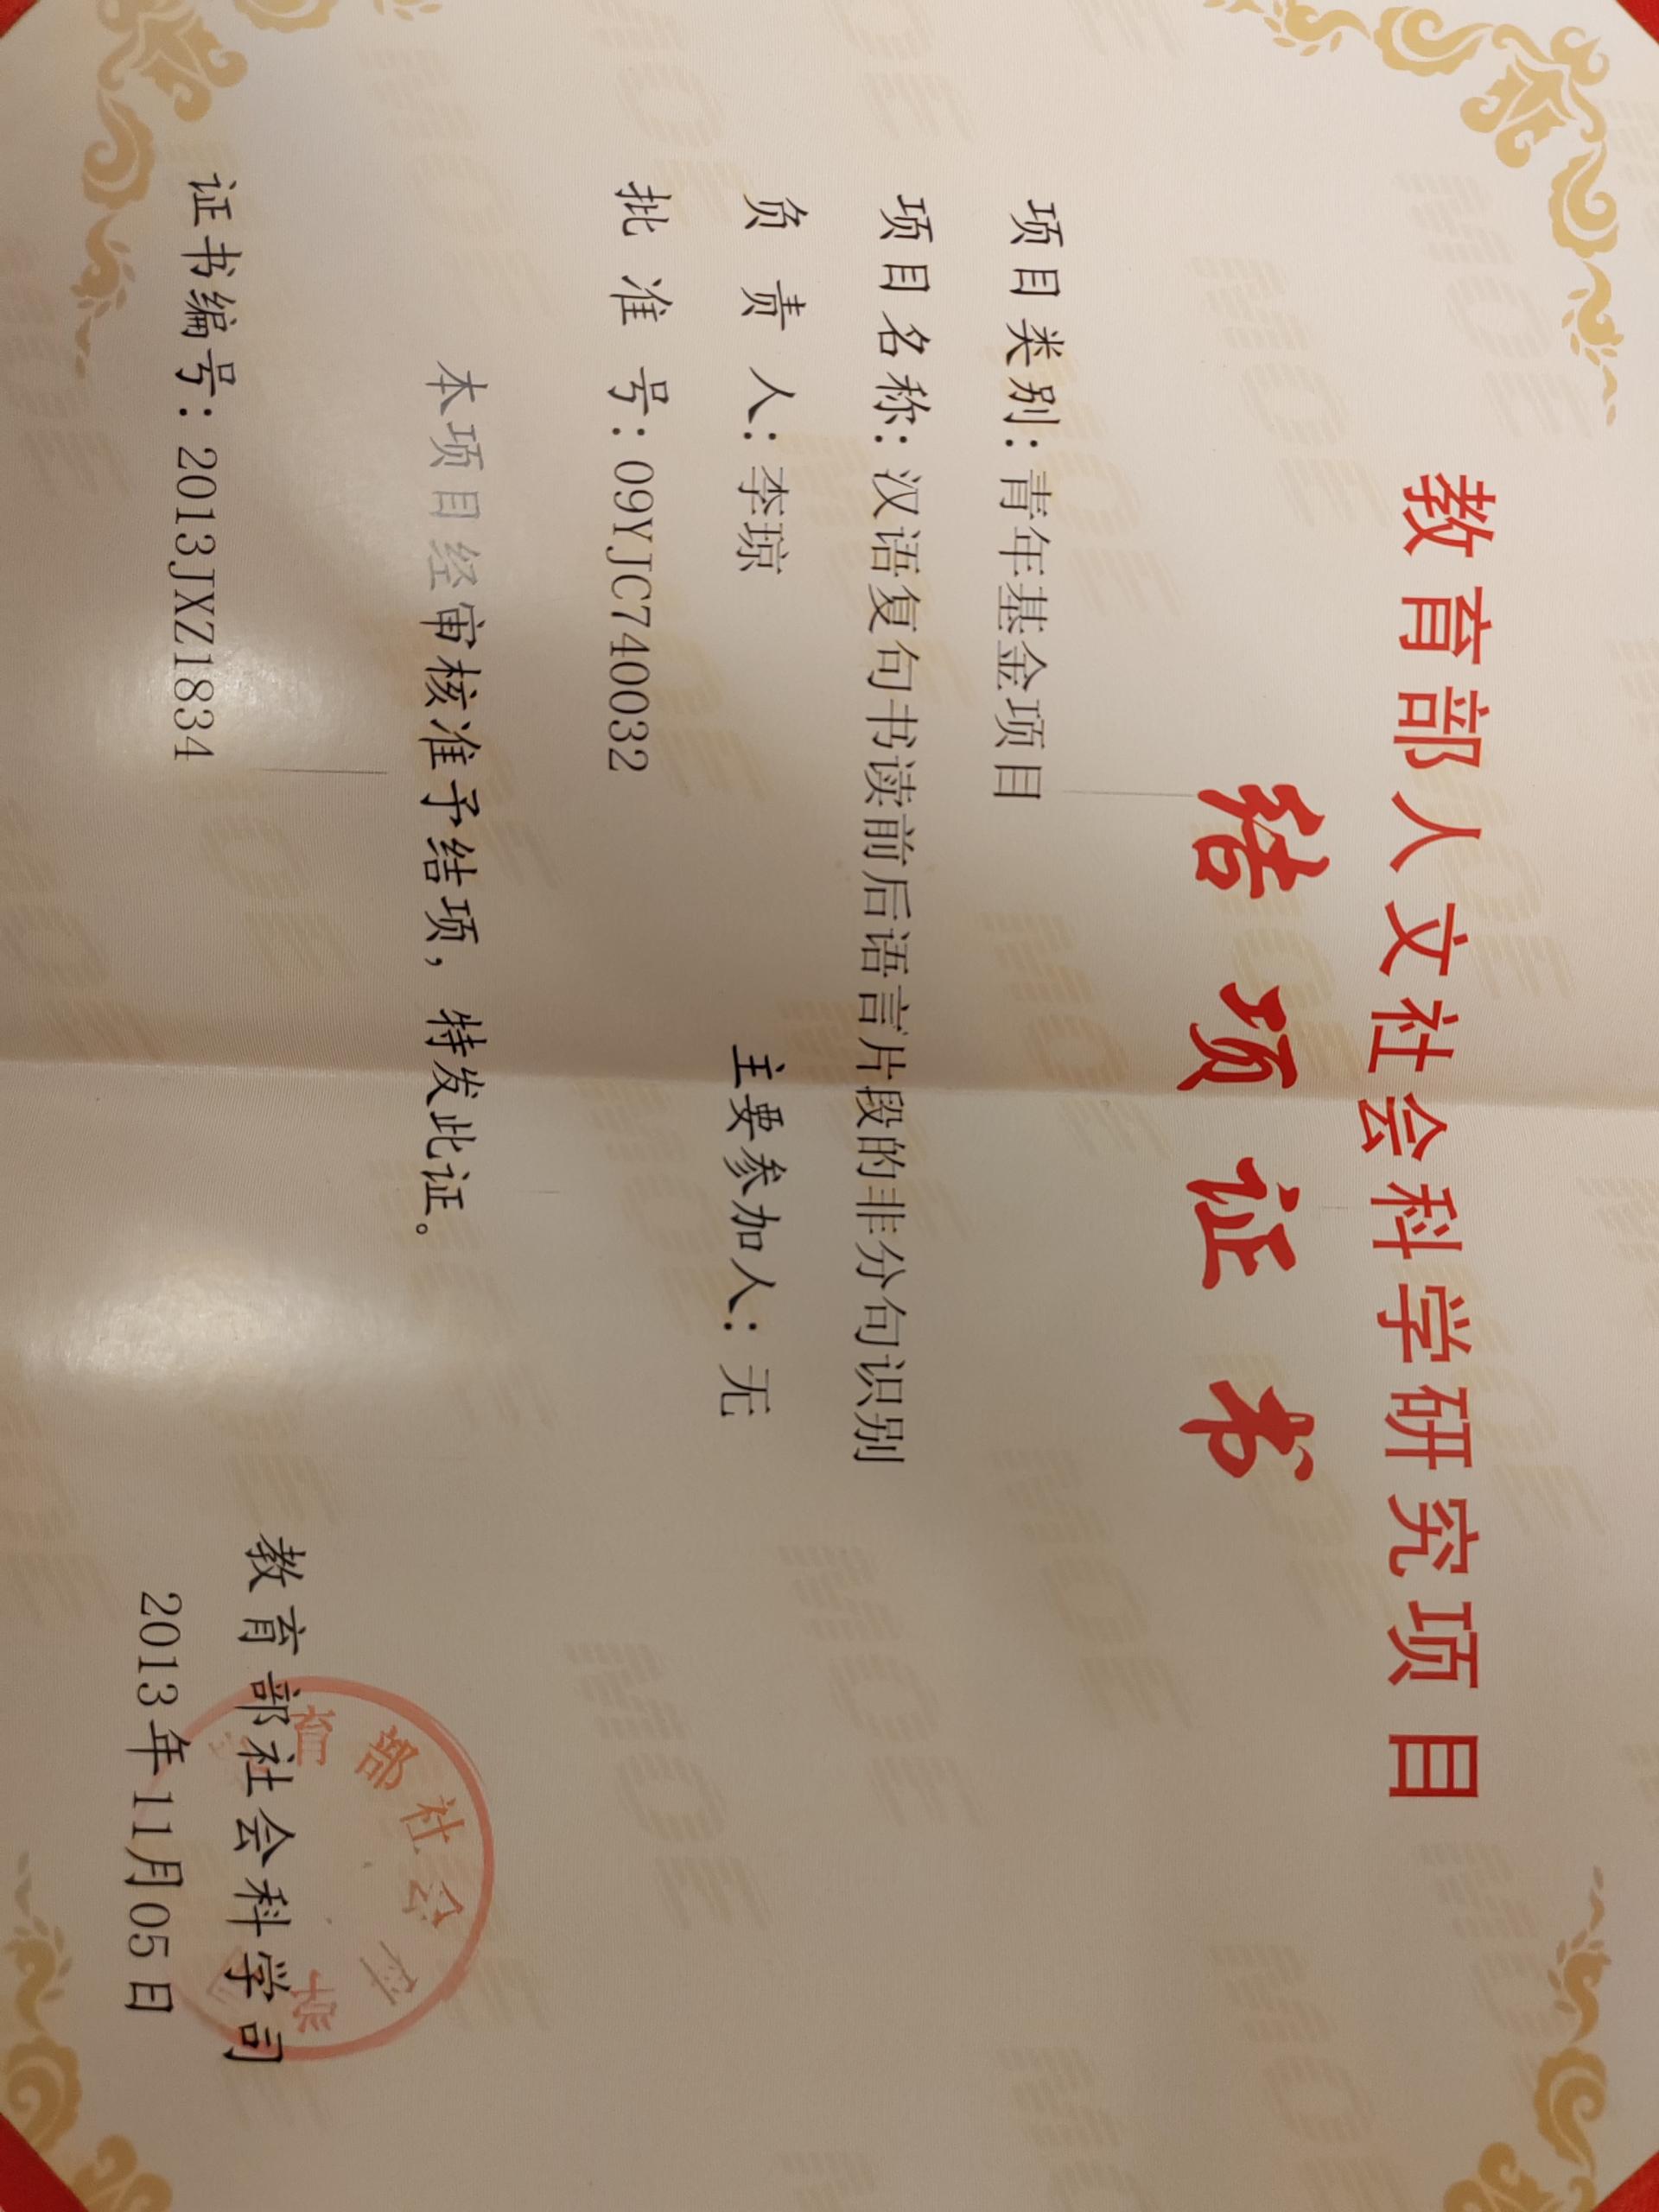 教育部人文社会科学研究项目
结项证书
项目类别：青年基金项目
项目名称：汉语复句书读前后语言片段的非分句识别
负 责 人：李琼 主要参加人：无
批 准 号：09YJC740032
本项目经审核准予结项，特发此证。
证书编号：2013JXZ1834
教育部社会科学司
2013年11月05日